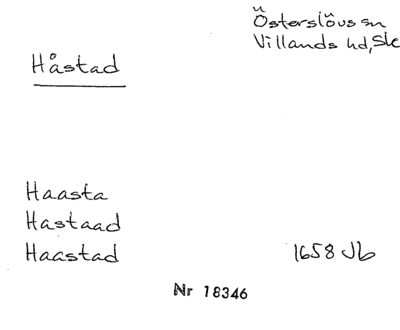 Österslövs sn
Villands hd, Sk
Håstad
Haasta
Hastaad
Haastad 1658 Jb
Nr 18346